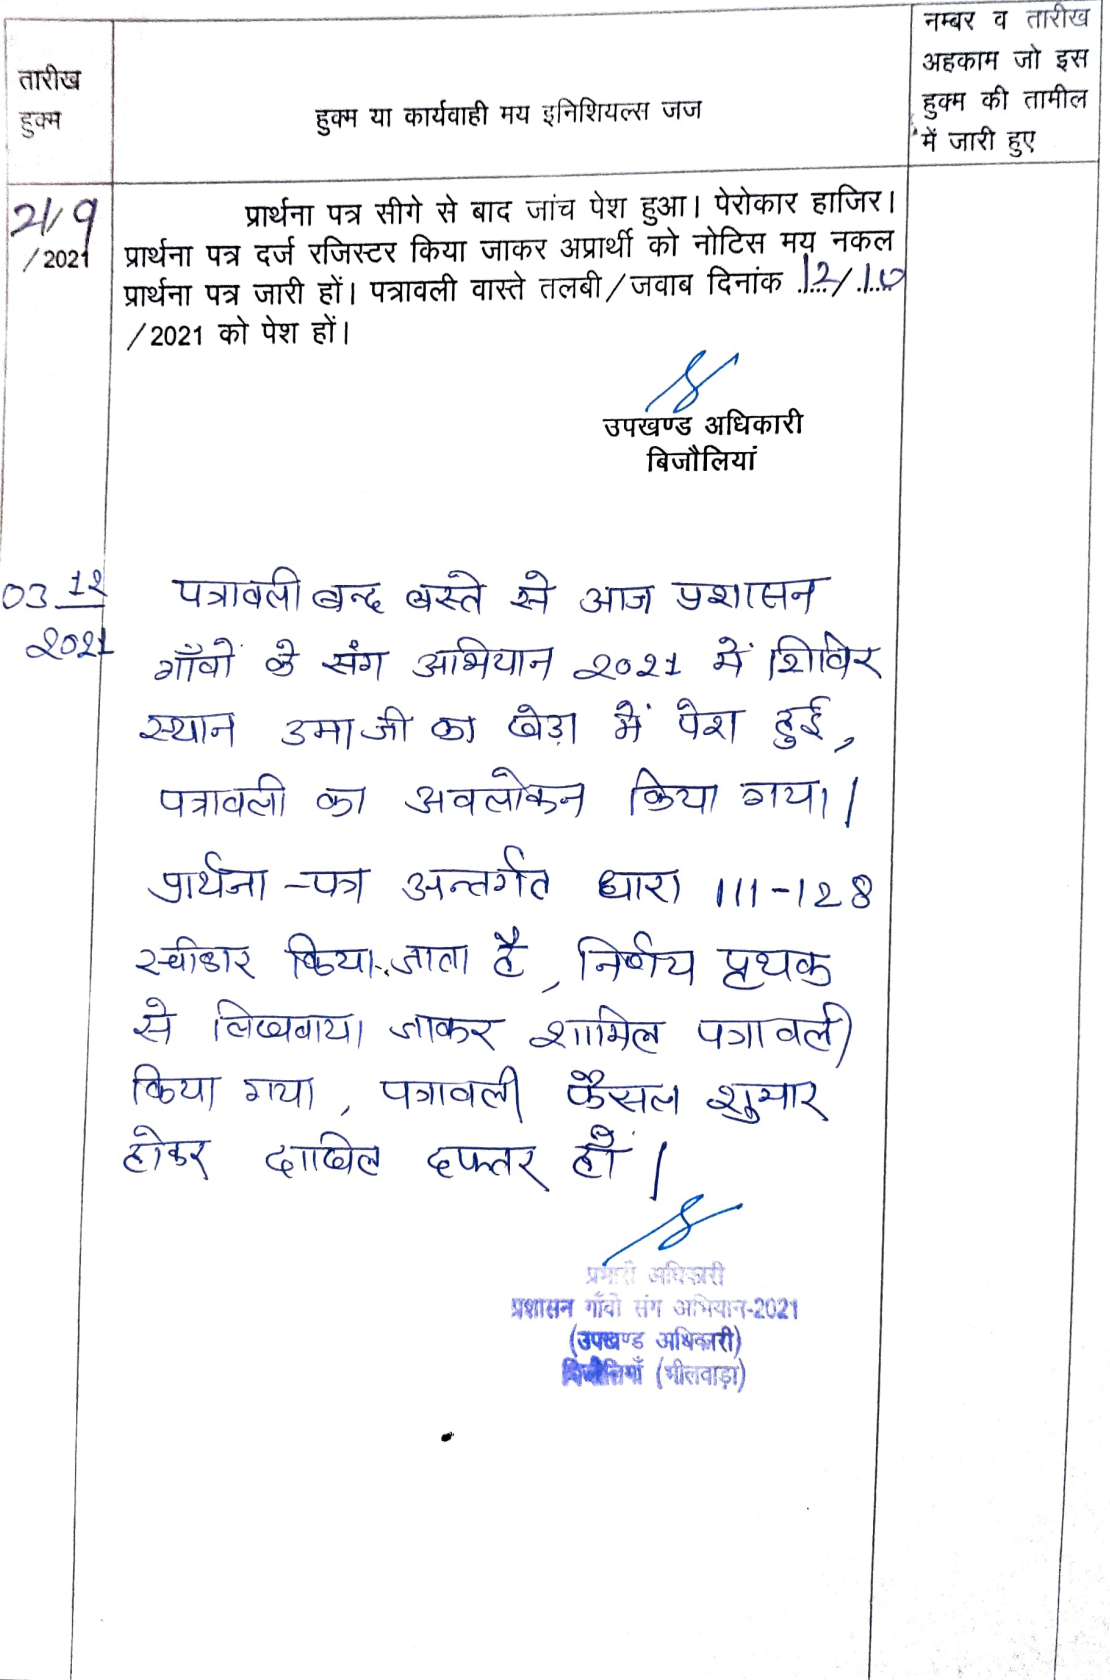 तारीख
हुक्म
हुक्म या कार्यवाही मय इनिशियल्स जज
नम्बर व तारीख
अहकाम जो इस
हुक्म की तामील
में जारी हुए
21/9
/2021
प्रार्थना पत्र सीगे से बाद जांच पेश हुआ। पेरोकार हाजिर।
प्रार्थना पत्र दर्ज रजिस्टर किया जाकर अप्रार्थी को नोटिस मय नकल
प्रार्थना पत्र जारी हों। पत्रावली वास्ते तलबी/जवाब दिनांक 12/10
/2021 को पेश हों।
उपखण्ड अधिकारी
बिजौलियां
03 12
2021
पत्रावली बन्द बस्ते से आज प्रशासन
गाँवों के संग अभियान 2021 में शिविर
स्थान उमाजी का खेड़ा में पेश हुई,
पत्रावली का अवलोकन किया गया।
प्रार्थना-पत्र अन्तर्गत धारा 111-128
स्वीकार किया जाता है, निर्णय पृथक
से लिखवाया जाकर शामिल पत्रावली
किया गया, पत्रावली फैसल शुमार
होकर दाखिल दफ्तर हों।
प्रभारी अधिकारी
प्रशासन गाँवो संग अभियान-2021
(उपखण्ड अधिकारी)
बिजौलियाँ (भीलवाड़ा)